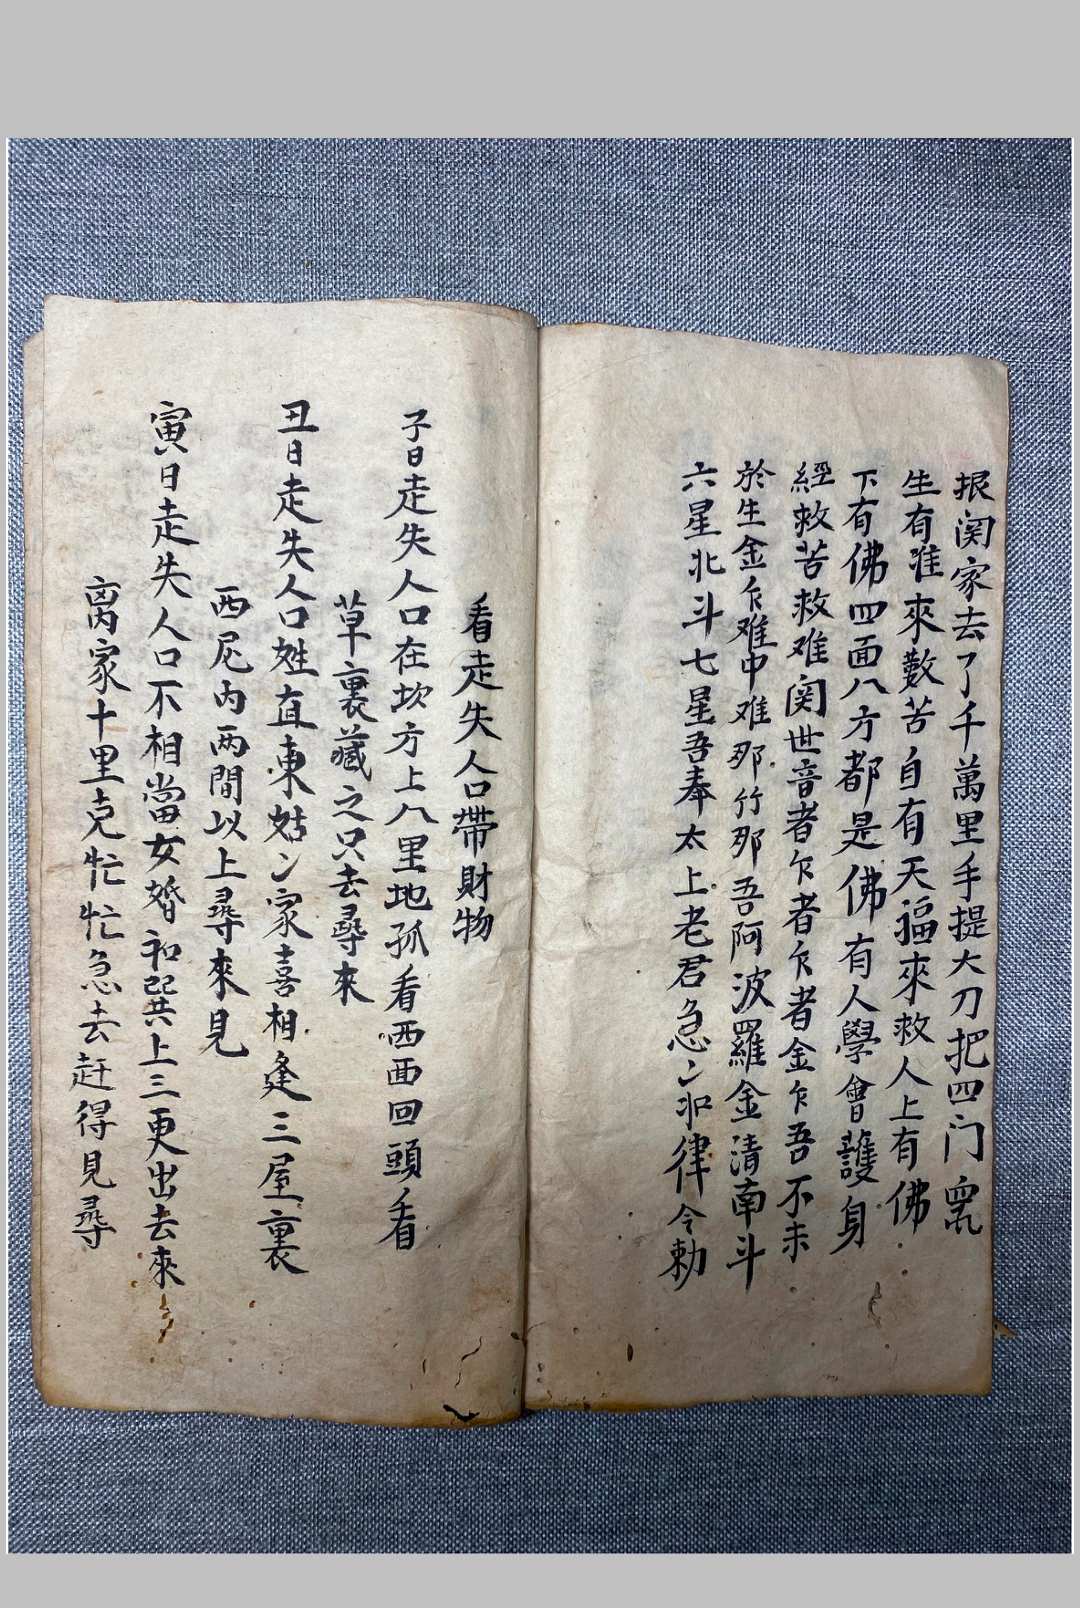 报関家去了千萬里手提大刀把四门
生有难來數苦自有天福來救人上有佛
下有佛四面八方都是佛有人學會護身
經救苦救难関世音者乍者乍者金乍吾不未
於生金乍难中难那竹那吾阿波羅金清南斗
六星北斗七星吾奉太上老君急〻如律令勅
看走失人口帶財物
子日走失人口在坎方上八里地孤看西面回頭看
草裏藏之只去尋來
丑日走失人口姓直東姑〻家喜相逢三屋裏
西尼内两間以上尋來見
寅日走失人口不相當女婚和配共上三更出去來
离家十里克忙忙急去赶得見尋